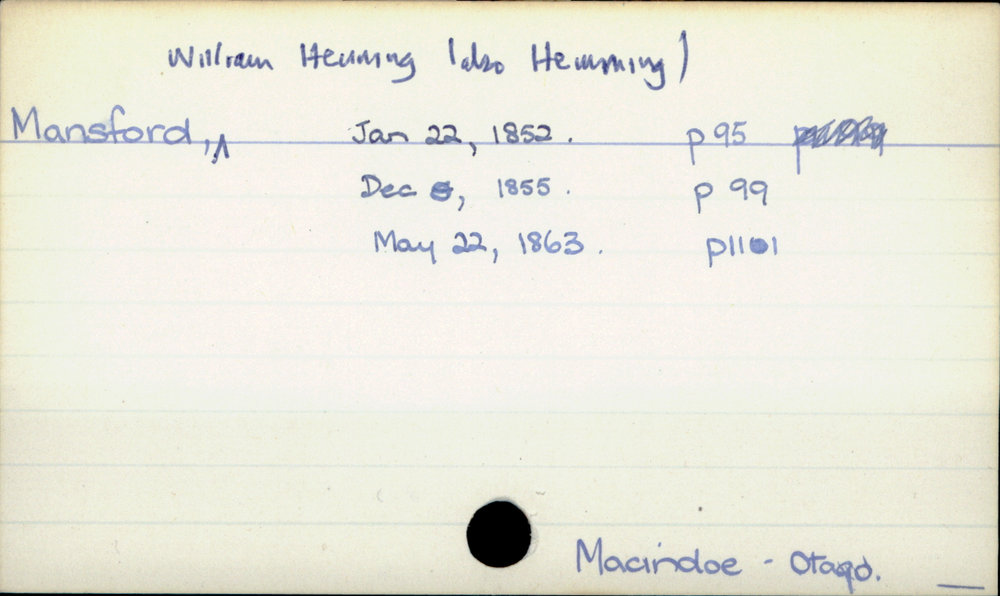 William Henning (also Hemming)
Mansford, Jan 22, 1852. p 95
Dec 8, 1855. p 99
May 22, 1863. p1101
Macindoe - Otago.